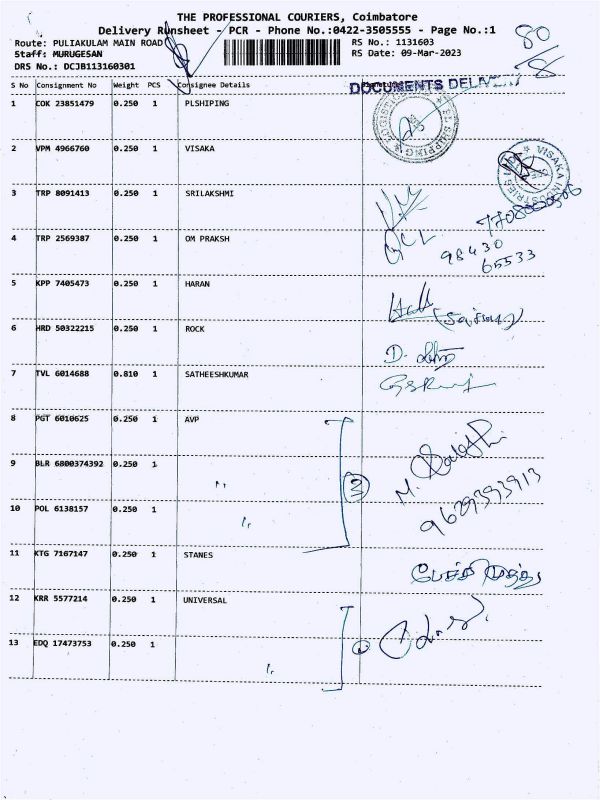 THE PROFESSIONAL COURIERS, Coimbatore
Delivery Runsheet - PCR - Phone No.:0422-3505555 - Page No.:1
Route: PULIAKULAM MAIN ROAD RS No.: 1131603
Staff: MURUGESAN RS Date: 09-Mar-2023
DRS No.: DCJB113160301
80
/8
S No Consignment No Weight PCS Consignee Details
DOCUMENTS
1 COK 23851479 0.250 1 PLSHIPING
SHIPPING
2 VPM 4966760 0.250 1 VISAKA
VISAKA INDUSTRIES
3 TRP 8091413 0.250 1 SRILAKSHMI
4 TRP 2569387 0.250 1 OM PRAKSH
98430
65533
5 KPP 7405473 0.250 1 HARAN
6 HRD 50322215 0.250 1 ROCK
7 TVL 6014688 0.810 1 SATHEESHKUMAR
8 PGT 6010625 0.250 1 AVP
9 BLR 6800374392 0.250 1 "
3
M.
9629393913
10 POL 6138157 0.250 1 "
11 KTG 7167147 0.250 1 STANES
பேச்சி முத்து
12 KRR 5577214 0.250 1 UNIVERSAL
13 EDQ 17473753 0.250 1 "